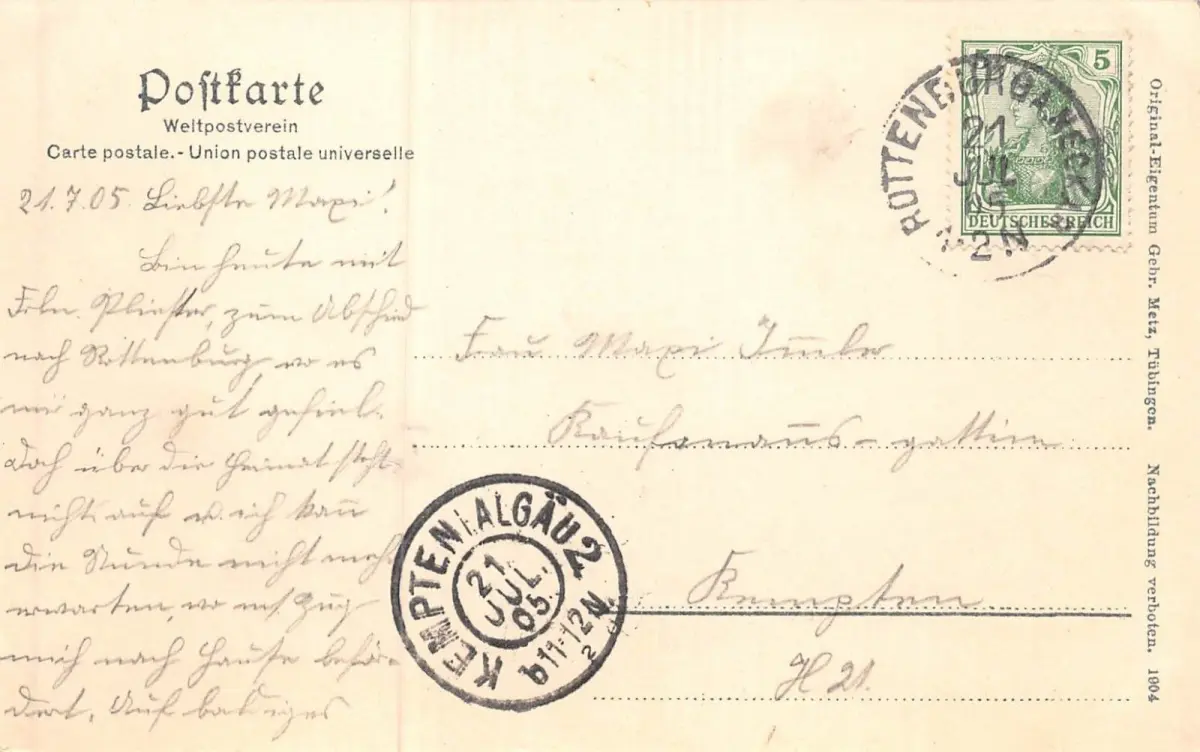 Postkarte
Weltpostverein
Carte postale.- Union postale universelle
21.7.05. Liebste Maxi!
Bin heute mit
Frln. zum Abschied
nach Rottenburg, wo es
mir ganz gut gefiel.
Doch über die Heimat steht
nichts auf u. ich kann
die Stunde nicht mehr
erwarten, wo mich Zug
mich nach Hause beför-
dert. Auf baldiges
5 5
DEUTSCHES REICH
ROTTENBURG A NECKAR
21
JUL
05
1-2N
Frau Maxi Immler
Kaufmanns-gattin
Kempten
H 21.
KEMPTEN (ALGÄU) 2
21
JUL.
05
b11-12N.
2
Original-Eigentum Gebr. Metz, Tübingen. Nachbildung verboten. 1904